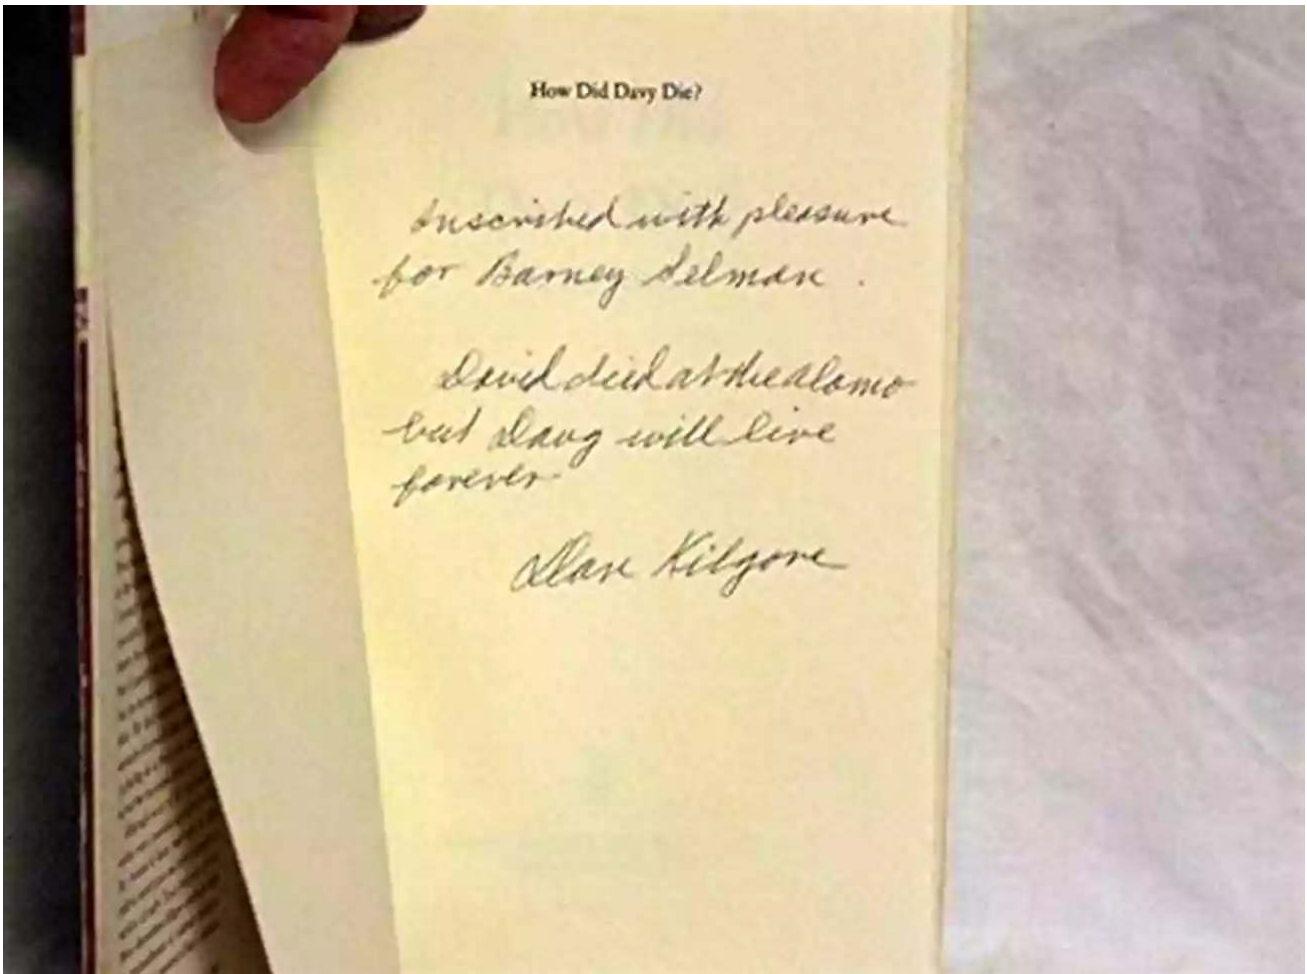 How Did Davy Die?
Inscribed with pleasure
for Barney Selman.
David died at the alamo
but Davy will live
forever
Dan Kilgore